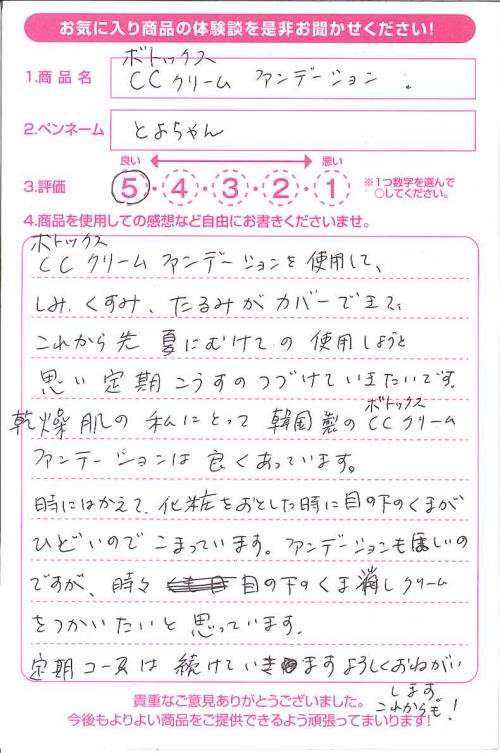 お気に入り商品の体験談を是非お聞かせください!
1.商品名
ボトックス
CCクリーム ファンデーション .
2.ペンネーム
とよちゃん
良い 悪い
3.評価
5・4・3・2・1
※1つ数字を選んで
○してください。
4.商品を使用しての感想など自由にお書きくださいませ。
ボトックス
CCクリーム ファンデーションを使用して、
しみ、くすみ、たるみがカバーできて
これから先 夏にむけての 使用しようと
思い 定期こうすのつづけていきたいです。
ボトックス
乾燥肌の 私にとって 韓国製の CCクリーム
ファンデーションは 良くあっています。
時にはかえて、化粧をおとした時に目の下のくまが
ひどいので こまっています。ファンデーションもほしいの
ですが、時々 目の下のくま 消しクリーム
をつかいたいと 思っています。
定期コースは 続けていきますよろしくおねがい
します。
これからも!
貴重なご意見ありがとうございました。
今後もよりよい商品をご提供できるよう頑張ってまいります!